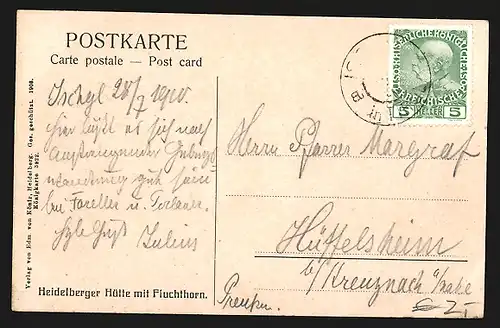 POSTKARTE
Carte postale — Post card
Ischgl 28/7 1910.
Hier läßt es sich nach
anstrengender Gebirgs
wanderung gut sein
bei Forellen u. Terlaner.
Hzle Grüß Julius
Heidelberger Hütte mit Fluchthorn.
Verlag von Edm von König, Heidelberg. Ges. geschützt. 1908.
Königkarte
KAISERLICHE KÖNIGLICHE
ÖSTERREICHISCHE
5 HELLER 5
Herrn Pfarrer Margraf
Hüffelsheim
b/ Kreuznach a/Nahe
Preußen.
2,-